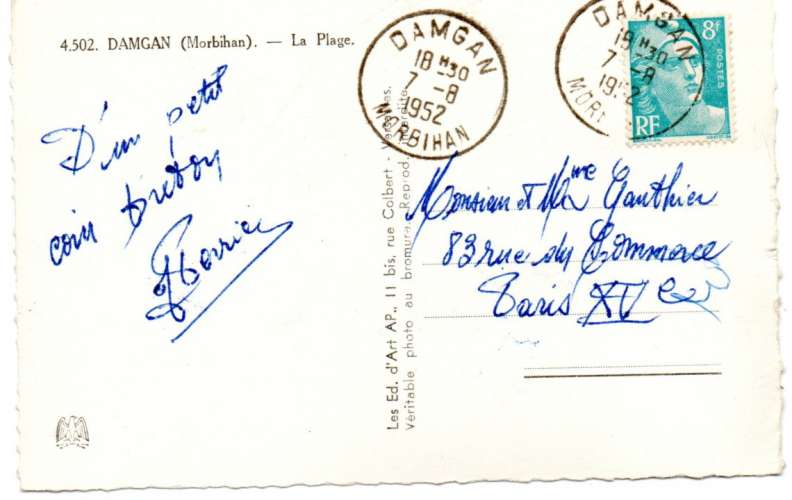 4.502. DAMGAN (Morbihan). — La Plage.
D'un petit
coin breton
DAMGAN
18 H30
7 -8
1952
MORBIHAN
DAMGAN
18 H30
7 -8
1952
MOR
8f
POSTES
RF
Les Ed. d'Art AP., 11 bis, rue Colbert - Versailles.
Véritable photo au bromure. Reprod. interdite.
Monsieur et Mme Gauthier
83 rue du Commerce
Paris XVe